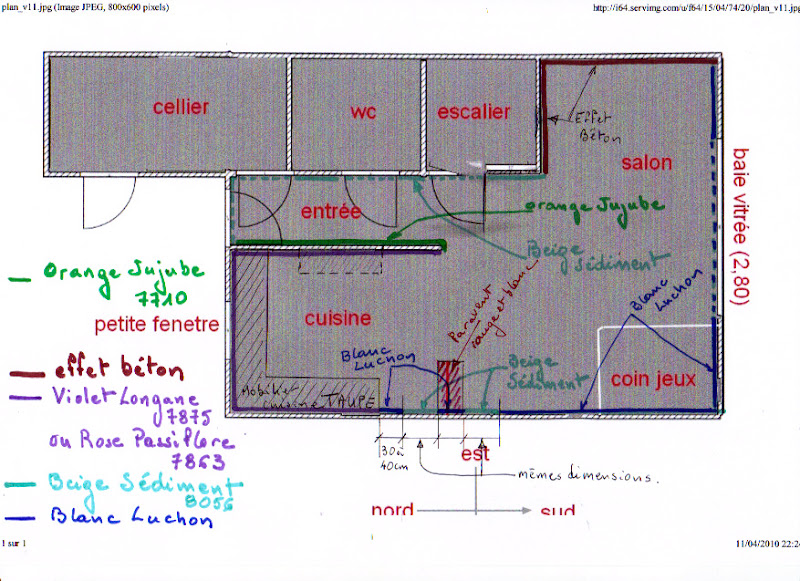 plan_v11.jpg (Image JPEG, 800x600 pixels)
http://i64.servimg.com/u/f64/15/04/74/20/plan_v11.jpg
cellier
wc
escalier
Effet
Béton
salon
baie vitrée (2,80)
entrée
orange Jujube
Beige
Sédiment
Orange Jujube
7710
petite fenetre
cuisine
Paravent
rouge et blanc
Blanc
Luchon
Blanc
Luchon
Beige
Sédiment
coin jeux
effet béton
Mobilier
cuisine TAUPE
Violet Longane
7875
ou Rose Passiflore
7863
30 à
40cm
est
mêmes dimensions.
Beige Sédiment
8056
Blanc Luchon
nord
sud
1 sur 1
11/04/2010 22:24